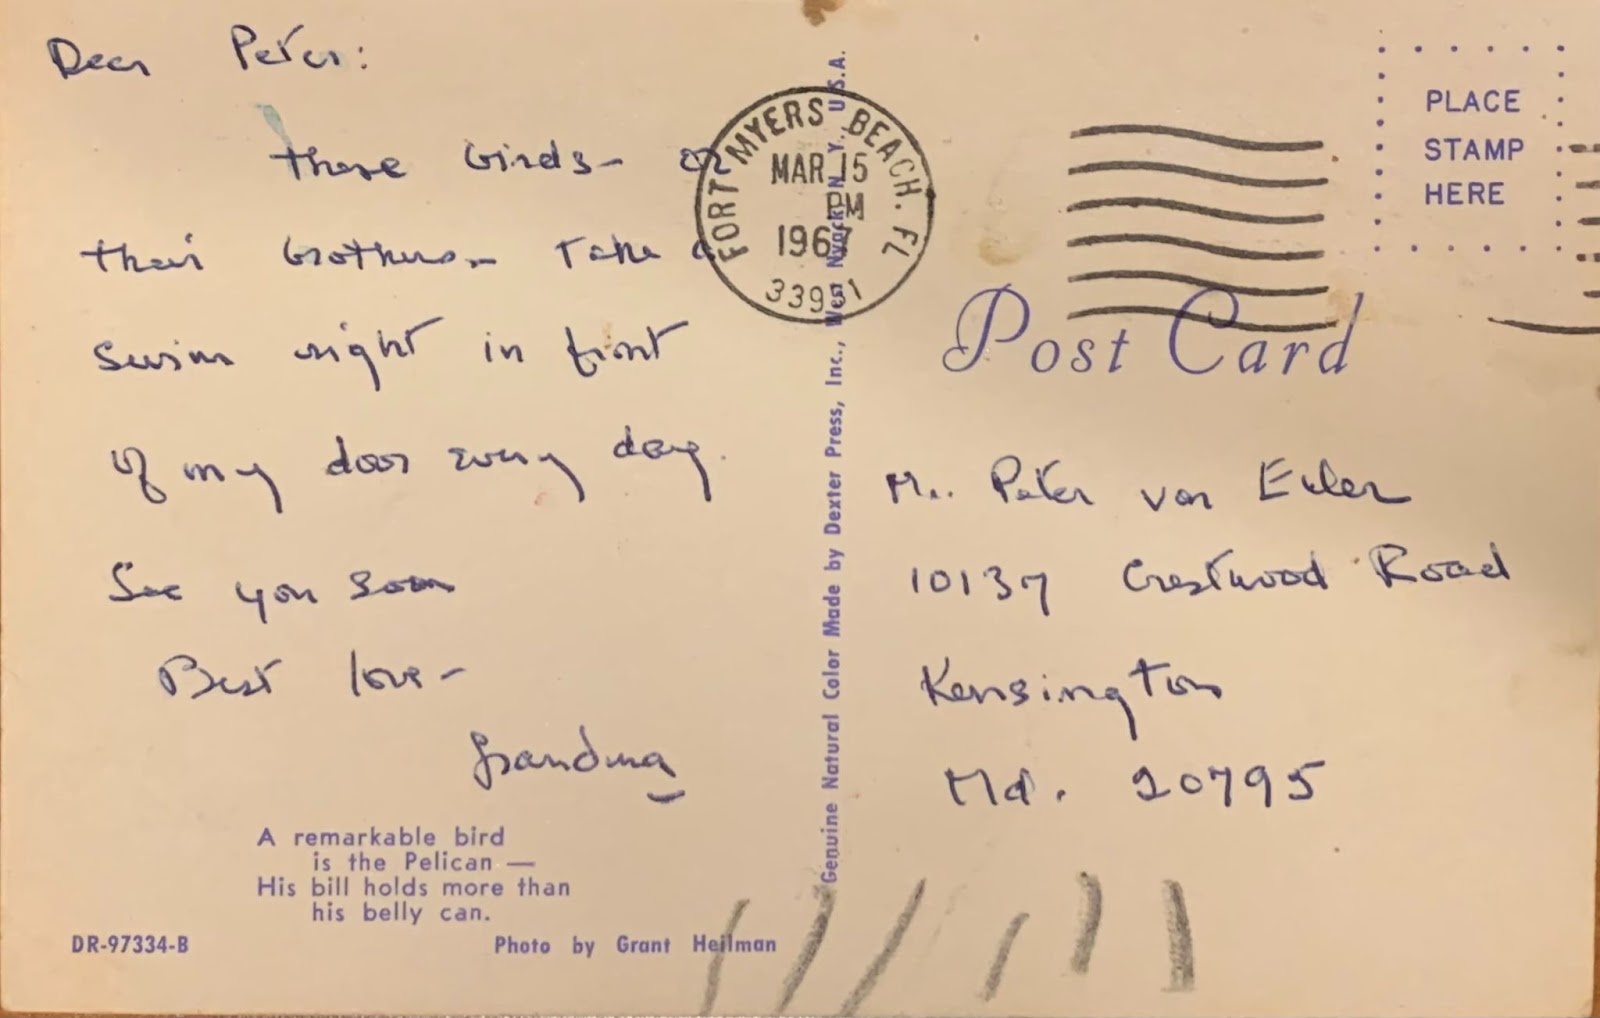 Dear Peter:
These birds - or
their brothers - take a
swim right in front
of my door every day.
See you soon
Best love -
Grandma
A remarkable bird
is the Pelican —
His bill holds more than
his belly can.
DR-97334-B
Photo by Grant Heilman
Genuine Natural Color Made by Dexter Press, Inc., West Nyack, N.Y., U.S.A.
FORT MYERS BEACH. FL
MAR 15
PM
1967
33931
PLACE
STAMP
HERE
Post Card
Mr. Peter von Euler
10137 Crestwood Road
Kensington
Md. 20795